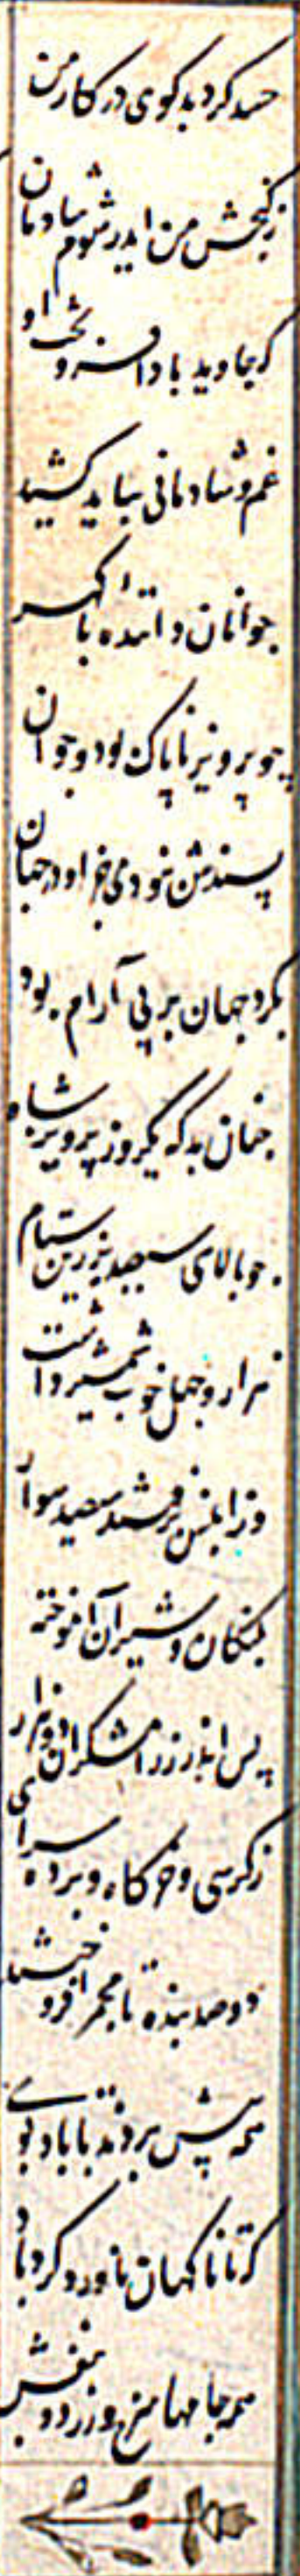 حسد کرد بدگوی در کار من
ز گنجش من ایدر شوم شادمان
که جاوید باد افسر و تخت او
غم و شادمانی بباید کشید
جوانان داننده باگهر
چو پرویز ناباک بود و جوان
پسندش نبودی جز او در جهان
بگرد جهان بر بی آرام بود
چنان بد که یکروز پرویز شاه
چو بالای سیصد بزرین ستام
هزار و چهل چوب شمشیر داشت
وز ایشان برفتند سیصد سوار
پلنگان و شیران آموخته
پس اندر ز رامشگران دو هزار
ز کرسی و خرگاه و پرده سرای
دو صد بنده تا مجمر افروختند
همه پیش بردند تا باد بوی
که تا ناگهان نآورد گرد باد
همه جامها سرخ و زرد و بنفش